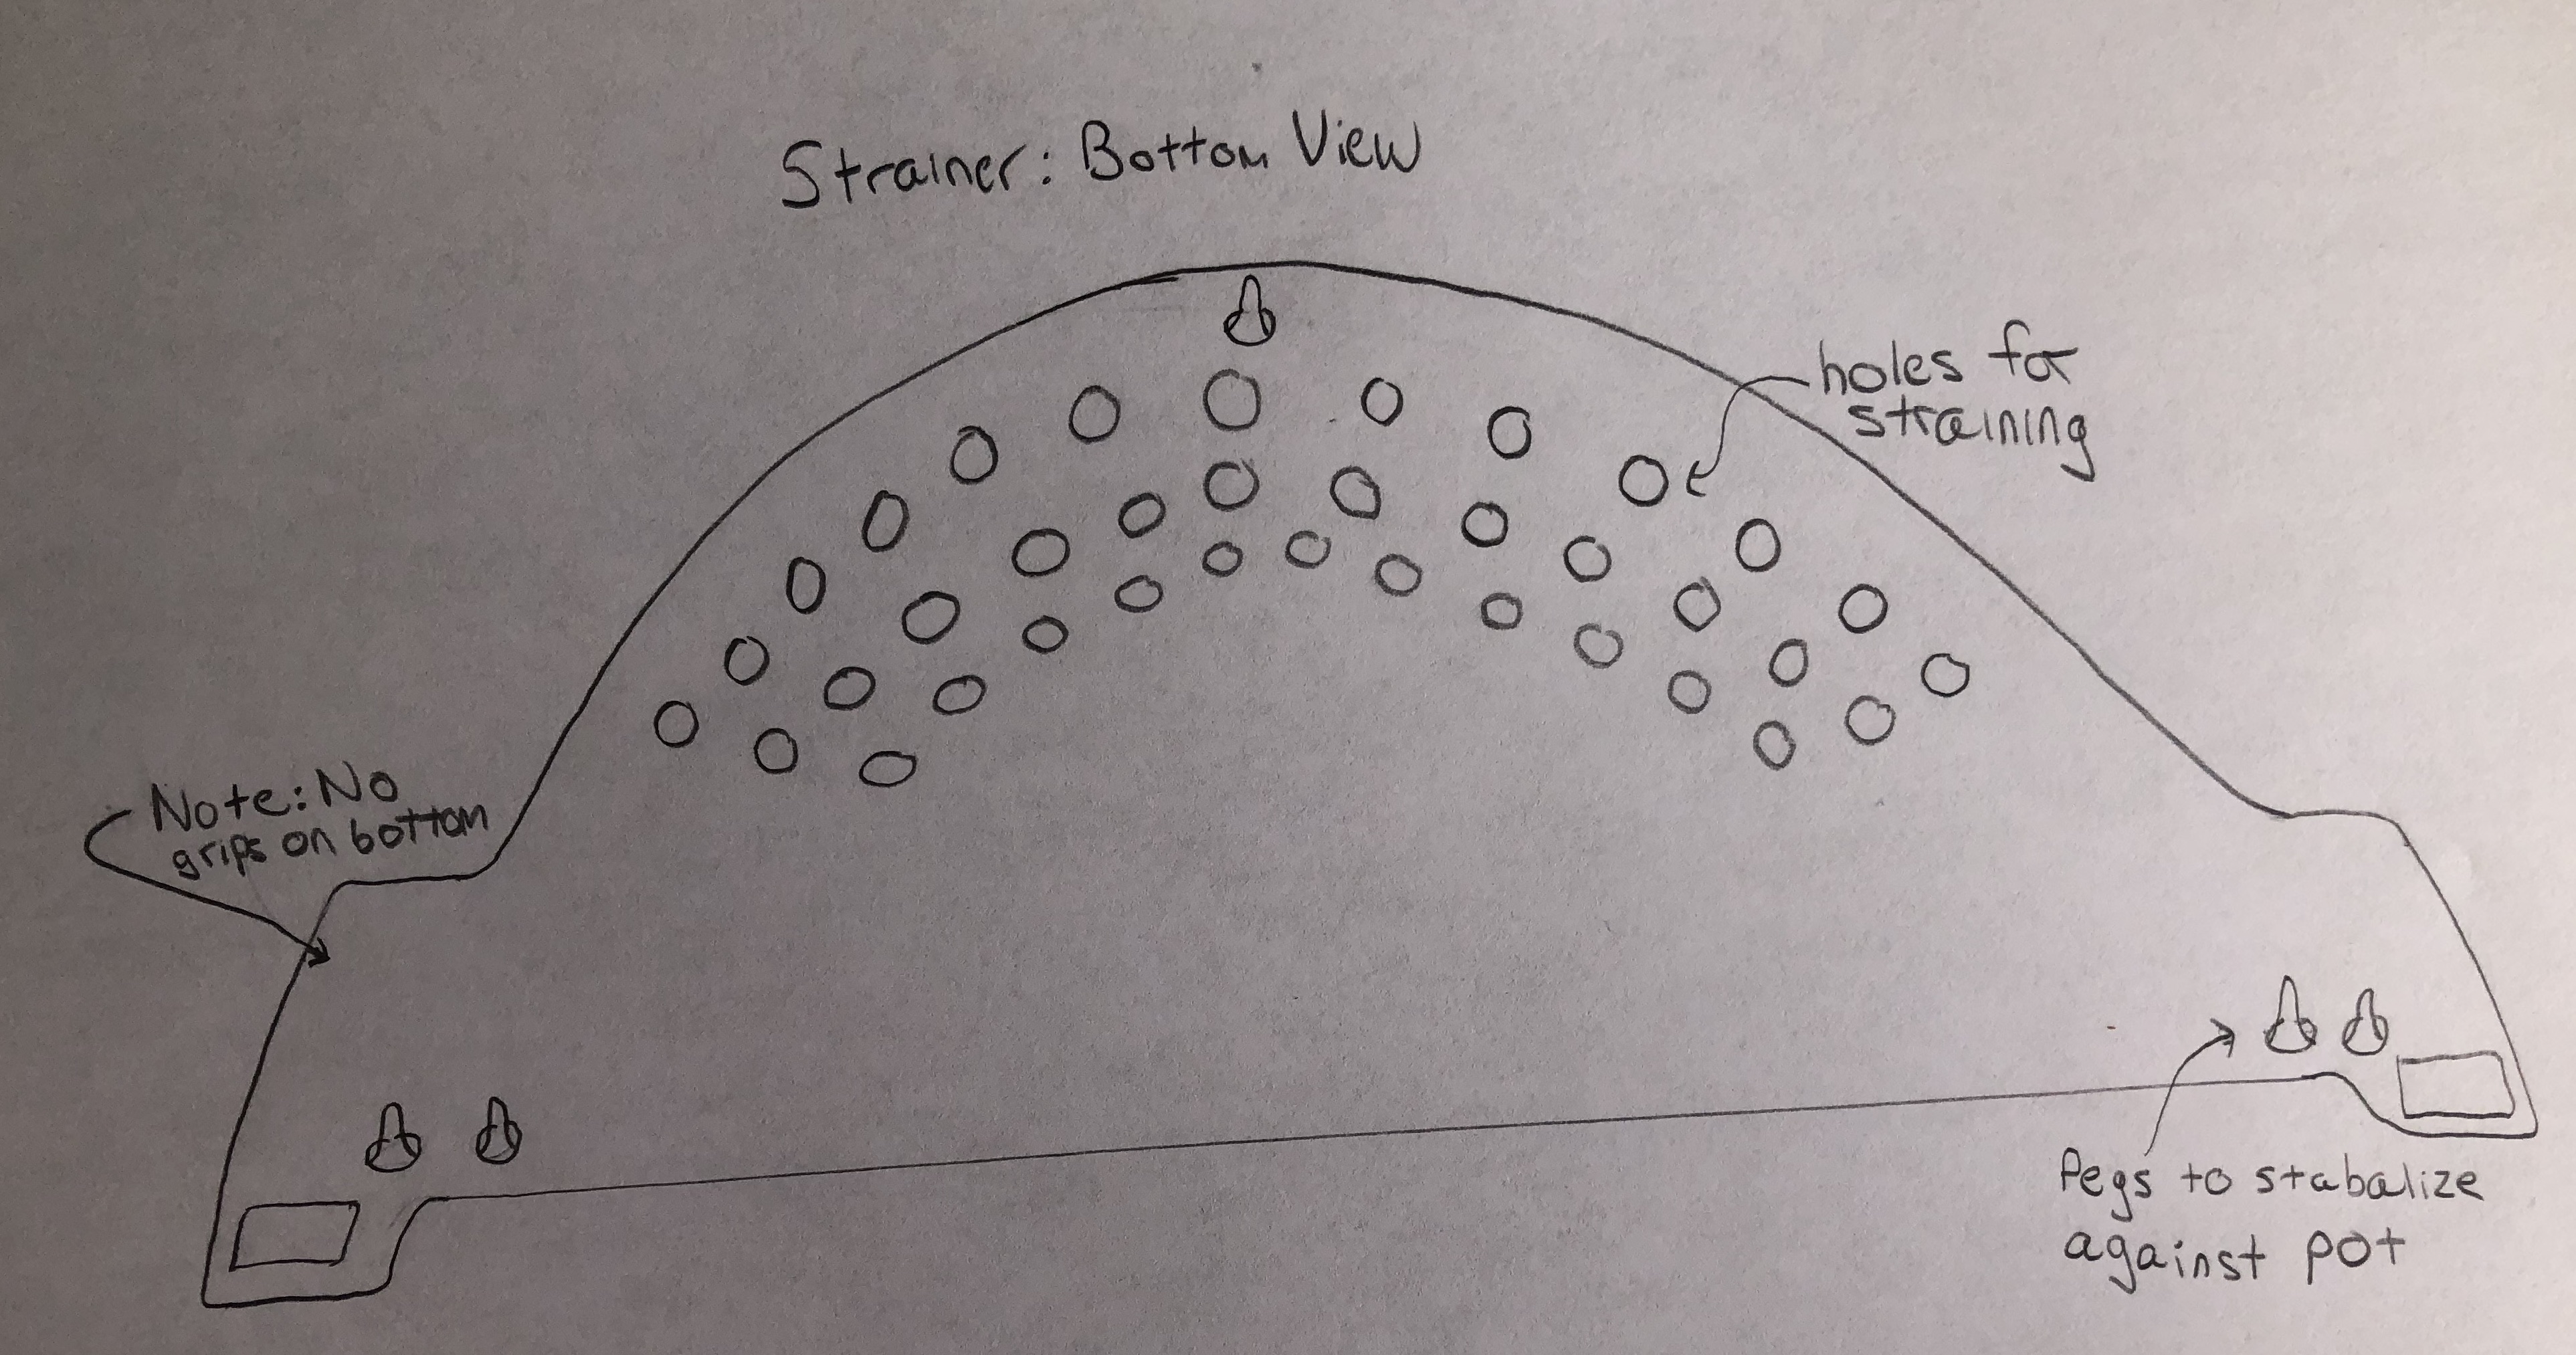 Strainer: Bottom View
holes for
straining
Note: No
grips on bottom
Pegs to stabalize
against pot